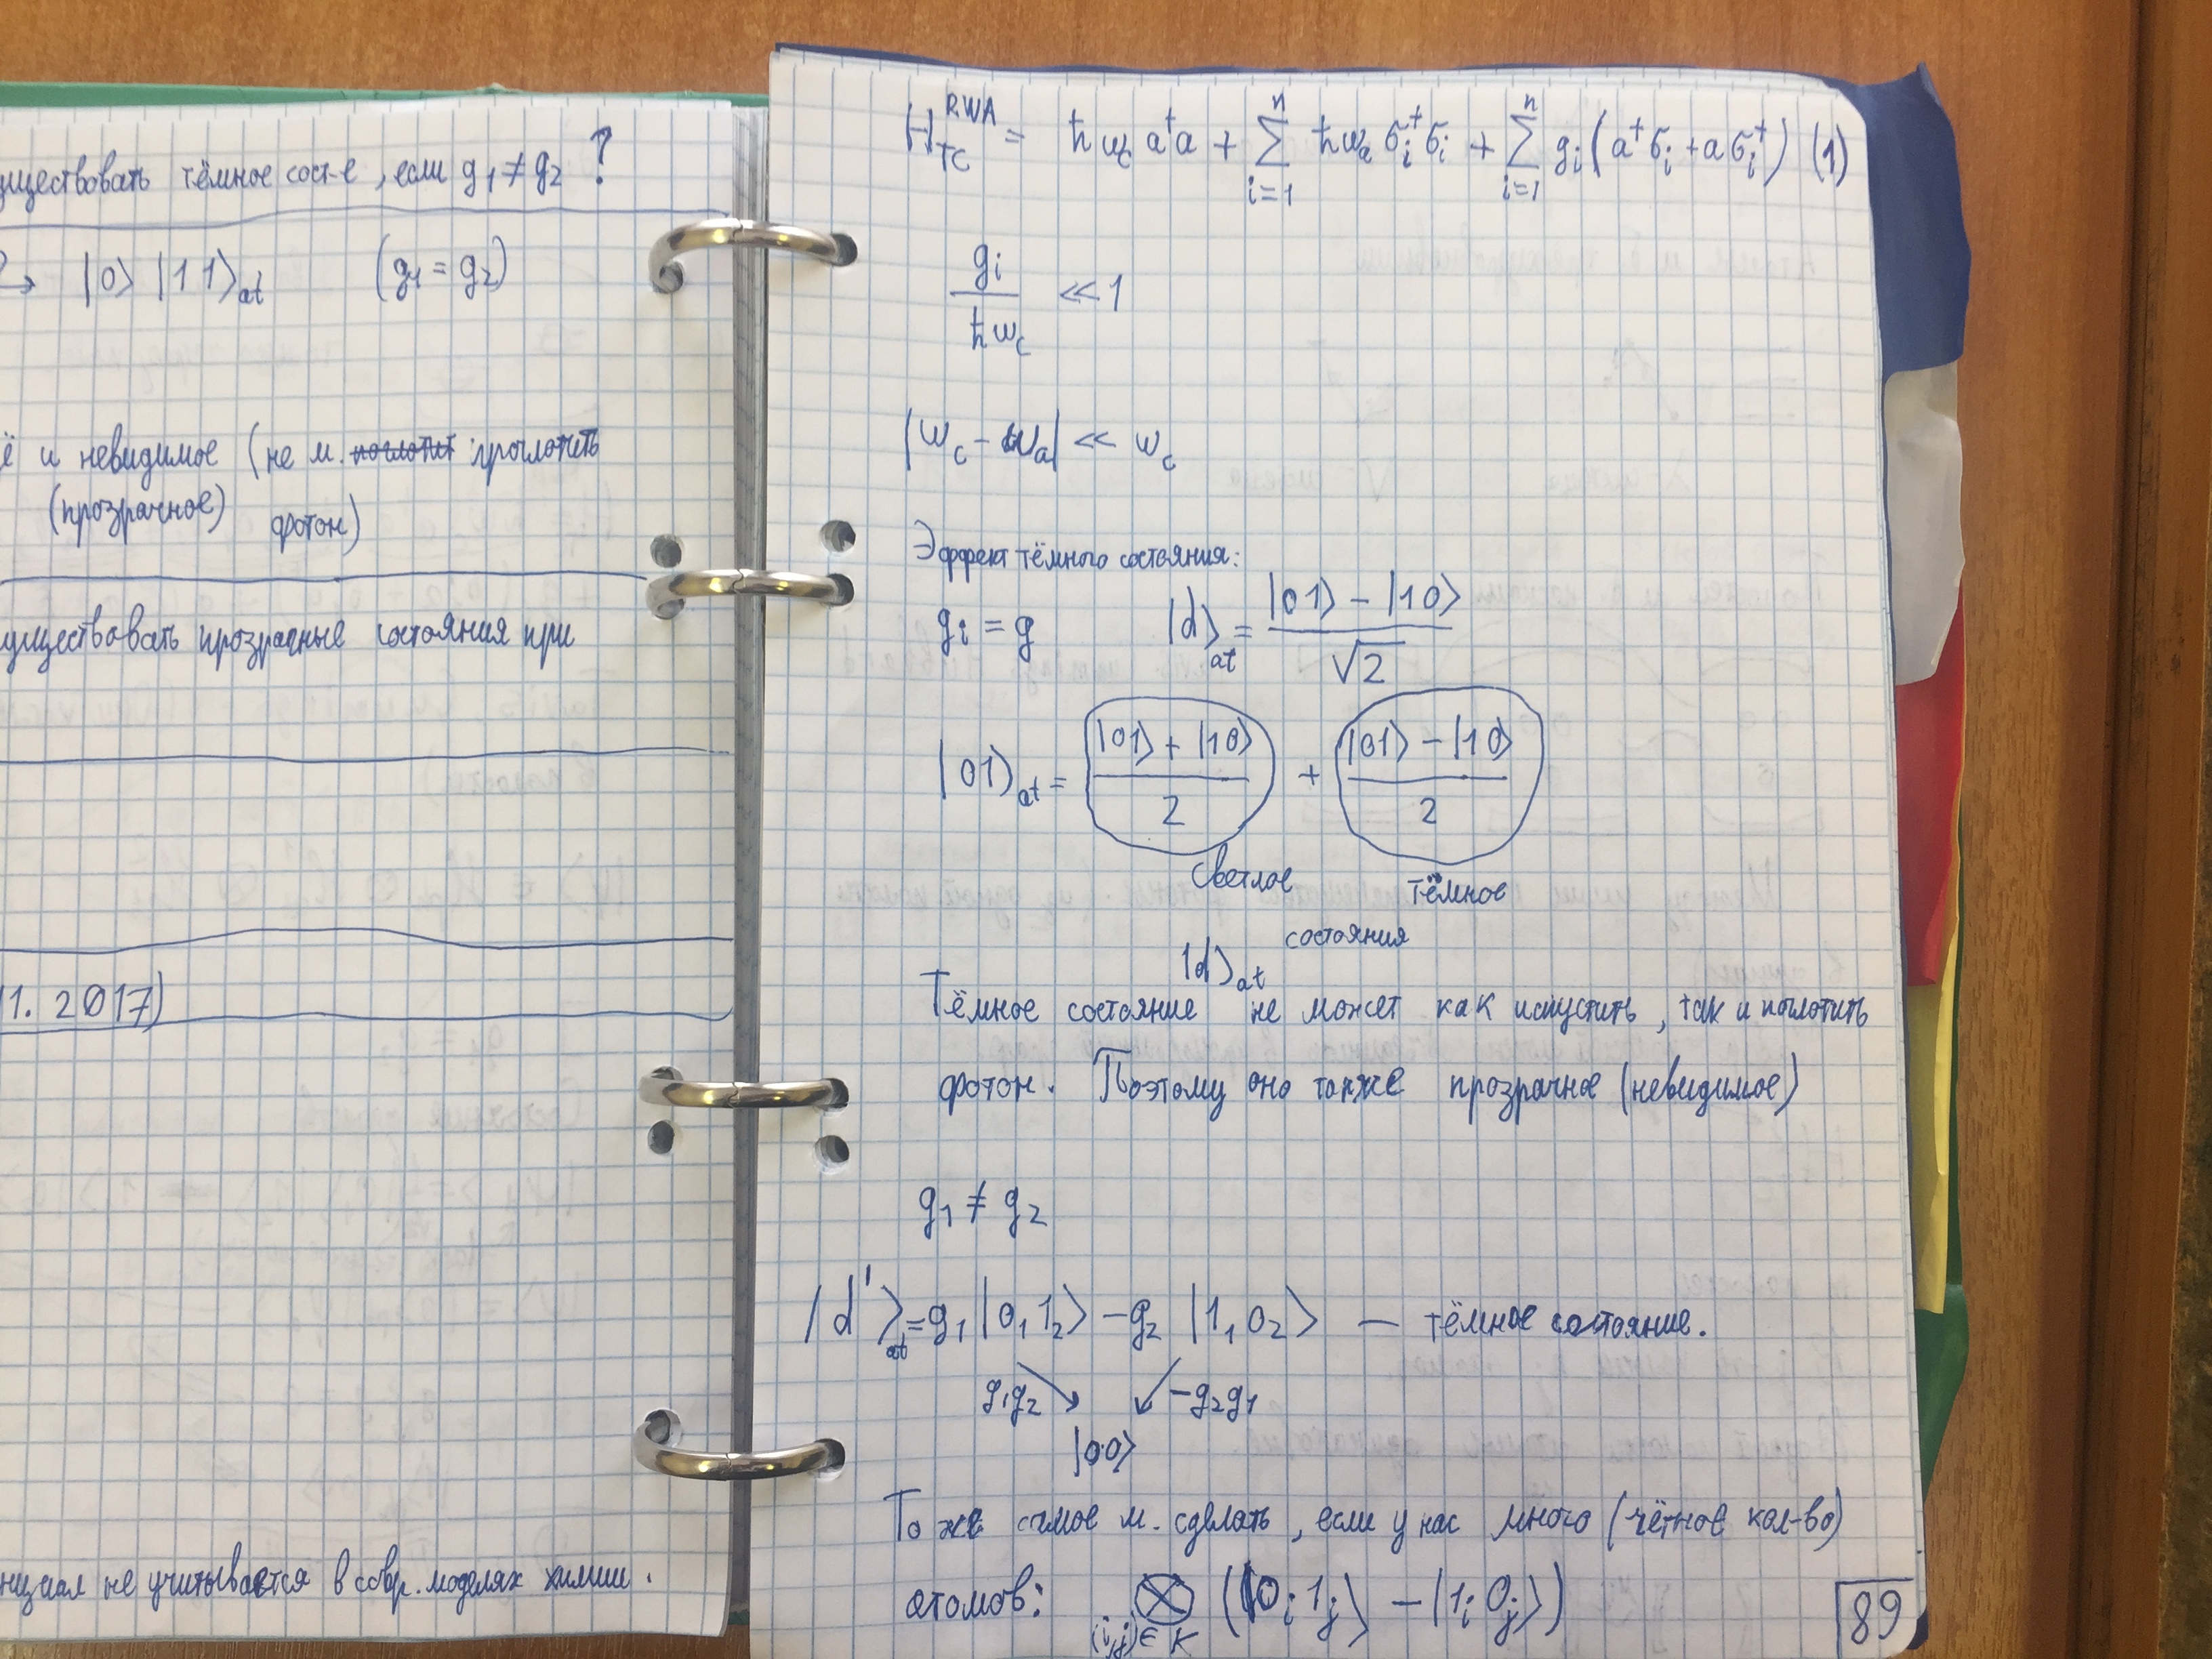 уществовать тёмное сост-е, если g₁ ≠ g₂ ?
→ |0⟩ |11⟩_at (g₁ = g₂)
ё и невидимое (не м. поглотит проглотить
(прозрачное) фотон)
уществовать прозрачные состояния при
1. 2017)
нциал не учитывается в совр. моделях химии.
H_TC^RWA = ħω_c a⁺a + Σ_{i=1}^{n} ħω_a σ_i⁺σ_i + Σ_{i=1}^{n} g_i (a⁺σ_i + aσ_i⁺) (1)
g_i / ħω_c ≪ 1
|ω_c − ω_a| ≪ ω_c
Эффект тёмного состояния:
g_i = g |d⟩_at = (|01⟩ − |10⟩) / √2
|01⟩_at = (|01⟩ + |10⟩) / 2 + (|01⟩ − |10⟩) / 2
светлое тёмное
состояния
|d⟩_at
Тёмное состояние не может как испустить, так и поглотить
фотон. Поэтому оно также прозрачное (невидимое)
g₁ ≠ g₂
|d'⟩_at = g₁ |0₁1₂⟩ − g₂ |1₁0₂⟩ — тёмное состояние.
g₁g₂ ↘ ↙ −g₂g₁
|00⟩
То же самое м. сделать, если у нас много (чётное кол-во)
атомов: ⊗_{(i,j)∈K} (|0_i 1_j⟩ − |1_i 0_j⟩)
89